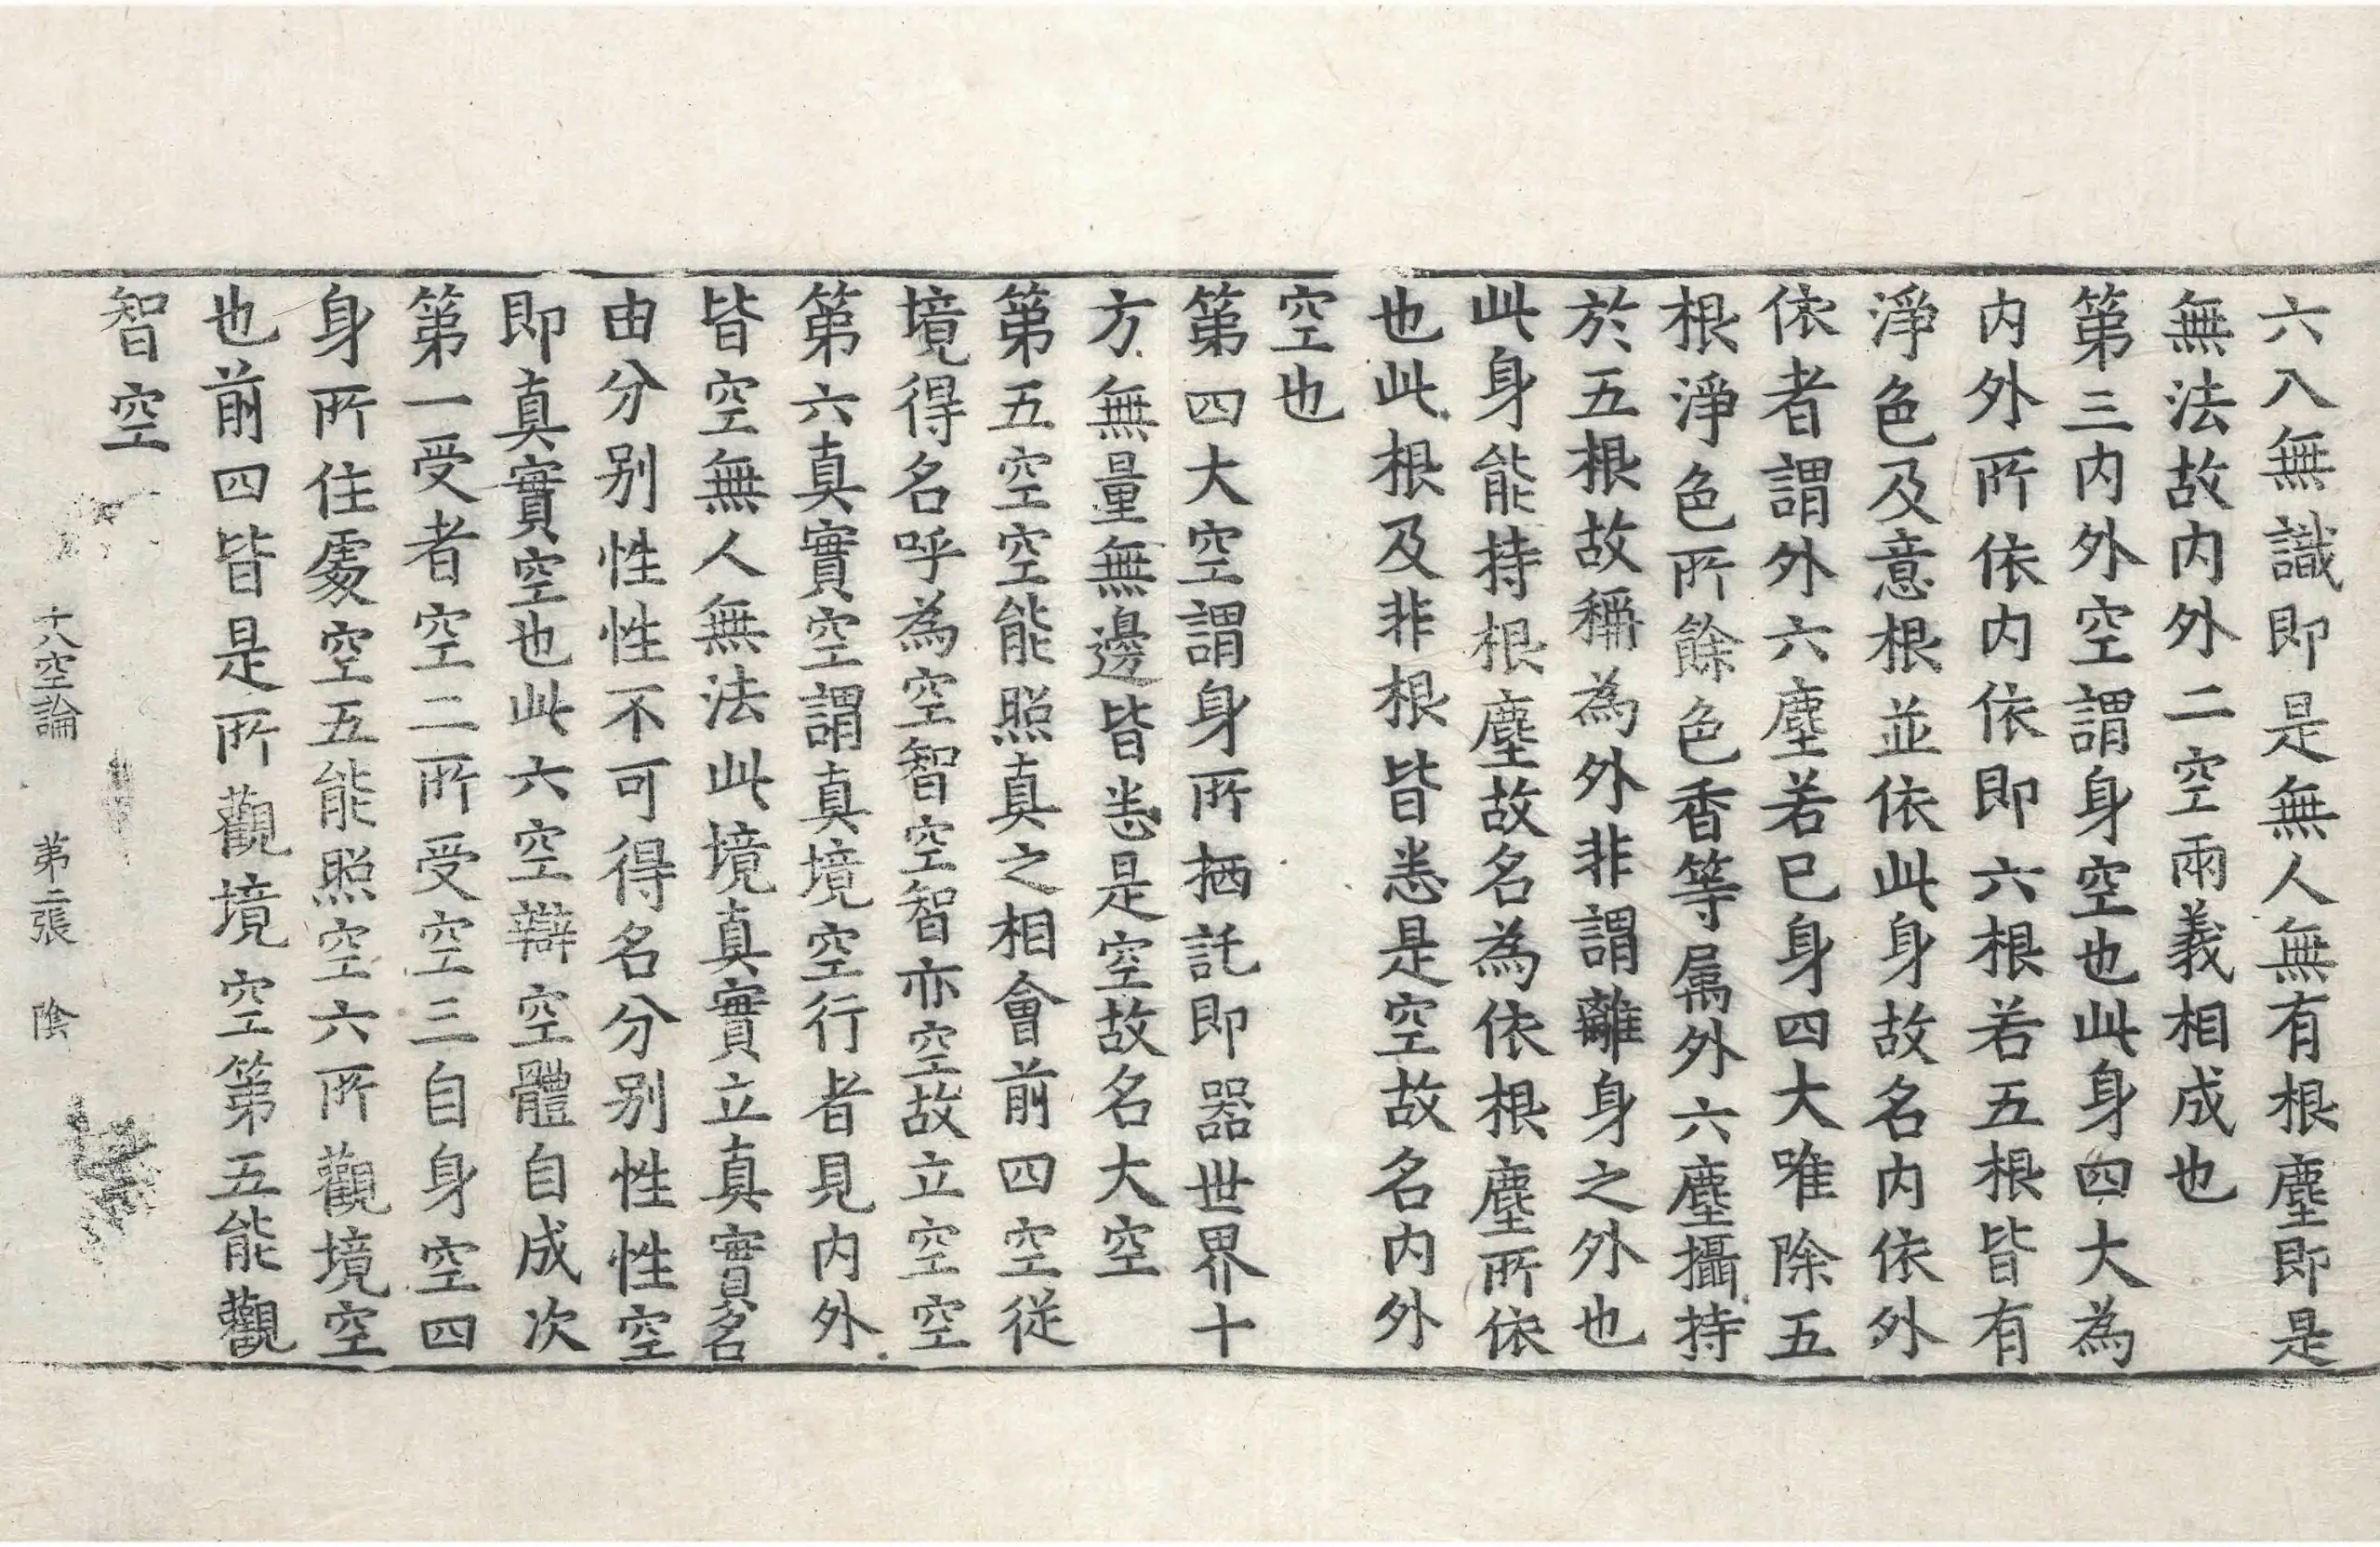 六入無識即是無人無有根塵即是
無法故内外二空兩義相成也
第三内外空謂身空也此身四大為
内外所依内依即六根若五根皆有
淨色及意根並依此身故名内依外
依者謂外六塵若己身四大唯除五
根淨色所餘色香等属外六塵攝持
於五根故稱為外非謂離身之外也
此身能持根塵故名為依根塵所依
也此根及非根皆悉是空故名内外
空也
第四大空謂身所栖託即器世界十
方無量無邊皆悉是空故名大空
第五空空能照真之相會前四空從
境得名呼為空智空智亦空故立空空
第六真實空謂真境空行者見内外
皆空無人無法此境真實立真實名
由分别性性不可得名分别性性空
即真實空也此六空辯空體自成次
第一受者空二所受空三自身空四
身所住處空五能照空六所觀境空
也前四皆是所觀境空第五能觀
智空
十八空論 第二張 陰